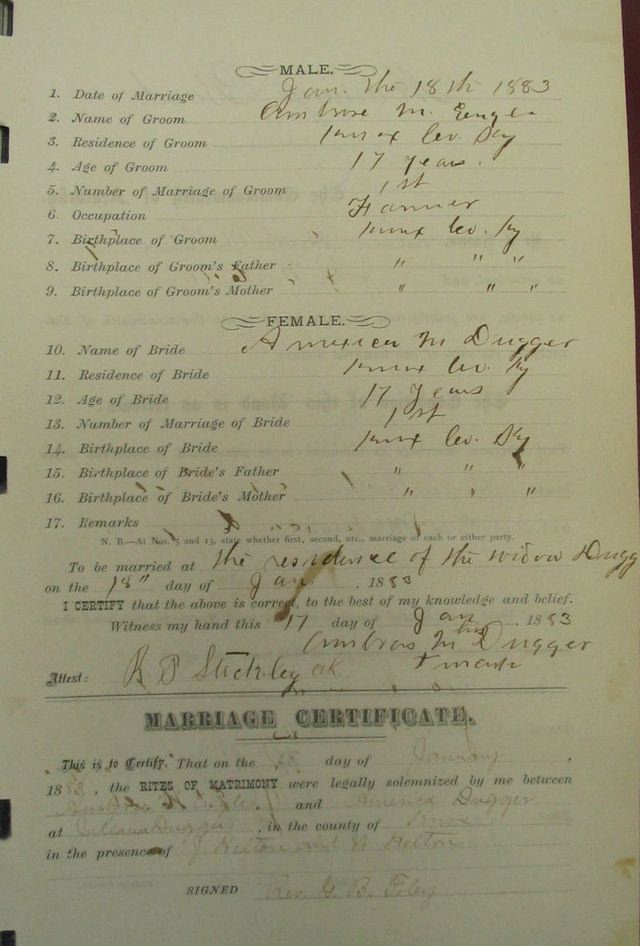 MALE.
1. Date of Marriage Jan. the 18th 1883
2. Name of Groom Ambrose M. Engle
3. Residence of Groom Knox Co. Ky
4. Age of Groom 17 years.
5. Number of Marriage of Groom 1st
6. Occupation Farmer
7. Birthplace of Groom Knox Co. Ky
8. Birthplace of Groom's Father " " "
9. Birthplace of Groom's Mother " " "
FEMALE.
10. Name of Bride America M Dugger
11. Residence of Bride Knox Co. Ky
12. Age of Bride 17 years
13. Number of Marriage of Bride 1st
14. Birthplace of Bride Knox Co. Ky
15. Birthplace of Bride's Father " " "
16. Birthplace of Bride's Mother " " "
17. Remarks
N. B.—At Nos. 5 and 13, state whether first, second, etc., marriage of each or either party.
To be married at the residence of the widow Dugg
on the 18" day of Jan, 1883
I CERTIFY that the above is correct, to the best of my knowledge and belief.
Witness my hand this 17 day of Jan, 1883
Ambros M his Dugger
Attest: Stickley clk + mark
MARRIAGE CERTIFICATE.
This is to Certify, That on the 18 day of January,
1883, the RITES OF MATRIMONY were legally solemnized by me between
Engle and America Dugger
at Dugger, in the county of Knox
in the presence of J Helton and W Helton
SIGNED Rev. G. B. Foley